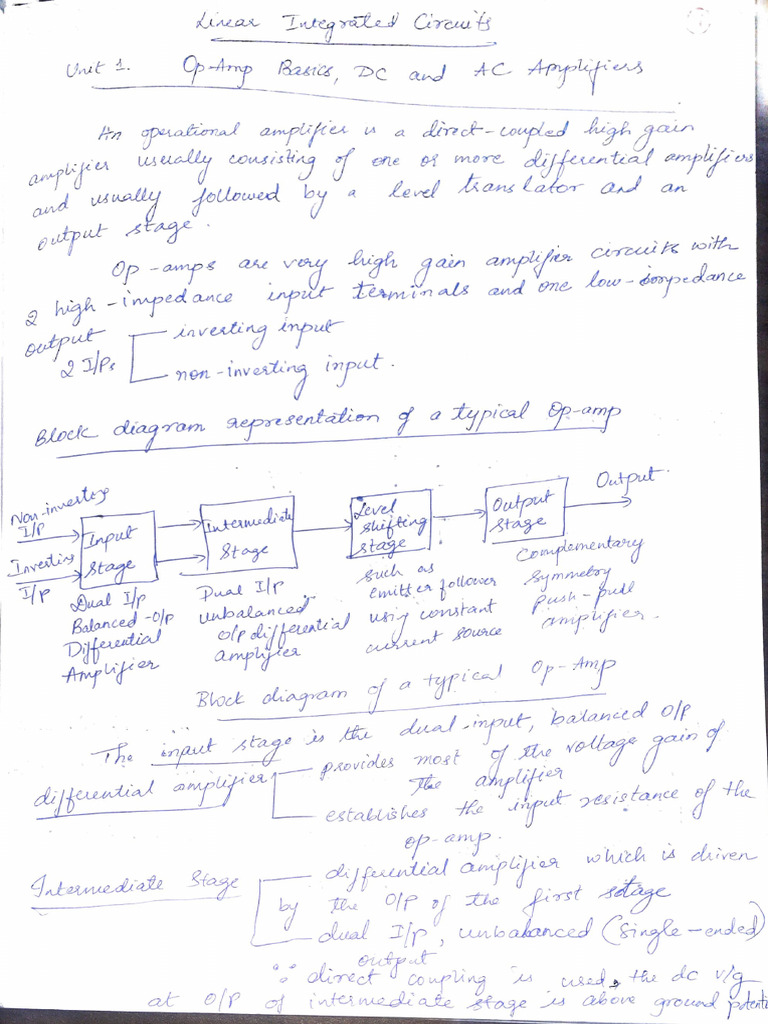 Linear Integrated Circuits
Unit 1. Op-Amp Basics, DC and AC Amplifiers
An operational amplifier is a direct-coupled high gain
amplifier usually consisting of one or more differential amplifiers
and usually followed by a level translator and an
output stage.
Op-amps are very high gain amplifier circuits with
2 high-impedance input terminals and one low-impedance
output
2 I/Ps
inverting input
non-inverting input.
Block diagram representation of a typical Op-amp
Non-inverting
I/P
Inverting
I/P
Input
Stage
Dual I/P
Balanced-O/P
Differential
Amplifier
Intermediate
Stage
Dual I/P
unbalanced
O/P differential
amplifier
Level
shifting
stage
such as
emitter follower
using constant
current source
Output
Stage
Complementary
Symmetry
Push-pull
amplifier.
Output.
Block diagram of a typical Op-Amp
The input stage is the dual-input, balanced O/P
differential amplifier
provides most of the voltage gain of
the amplifier
establishes the input resistance of the
op-amp.
Intermediate Stage
differential amplifier which is driven
by the O/P of the first stage
dual I/P, unbalanced (single-ended)
output
∵ direct coupling is used, the dc v/g
at O/P of intermediate stage is above ground potenti